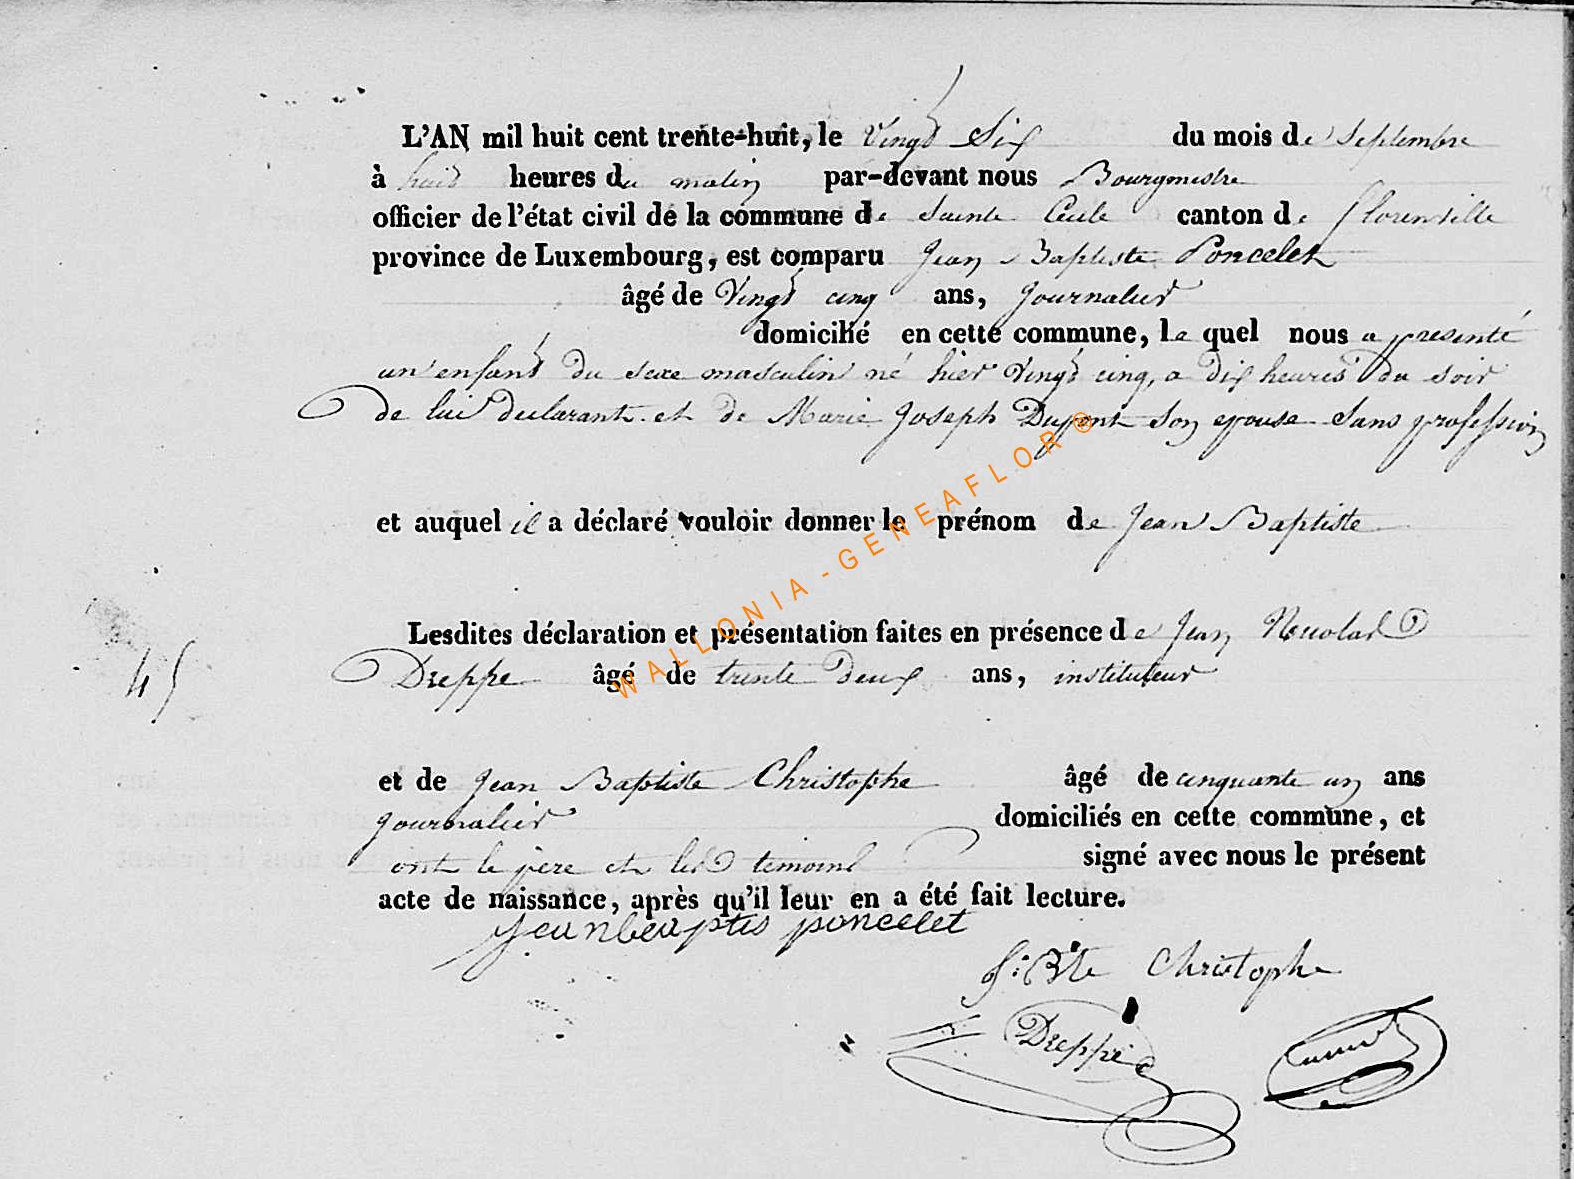 L'AN mil huit cent trente-huit, le Vingt Six du mois de Septembre
à huit heures du matin par-devant nous Bourgmestre
officier de l'état civil de la commune de Sainte Cecile canton de florenville
province de Luxembourg, est comparu Jean Baptiste Poncelet
âgé de Vingt cinq ans, Journalier
domicilié en cette commune, le quel nous a presenté
un enfant du sexe masculin né hier Vingt cinq, a dix heures du soir
de lui declarant et de Marie Joseph Dupont son epouse sans profession
et auquel il a déclaré vouloir donner le prénom de Jean Baptiste
Lesdites déclaration et présentation faites en présence de Jean Nicolas
45
Dreppe âgé de trente deux ans, instituteur
et de Jean Baptiste Christophe âgé de cinquante un ans
Journalier domiciliés en cette commune, et
ont le père et les temoins signé avec nous le présent
acte de naissance, après qu'il leur en a été fait lecture.
jeanbaptis poncelet
J: Bte Christophe
Dreppe
WALLONIA - GENEAFLOR ®